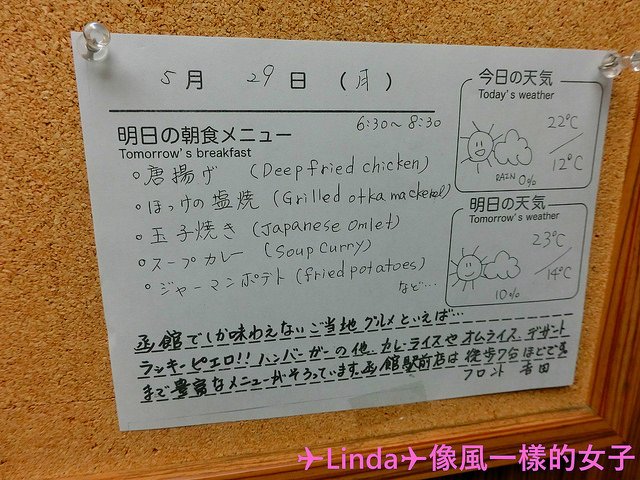 5月 29日 (月)
明日の朝食メニュー 6:30~8:30
Tomorrow's breakfast
。唐揚げ (Deep fried chicken)
。ほっけの塩焼 (Grilled otka mackerel)
。玉子焼き (Japanese omlet)
。スープカレー (Soup Curry)
。ジャーマンポテト (fried potatoes)
など…
今日の天気
Today's weather
22℃
12℃
RAIN 0%
明日の天気
Tomorrow's weather
23℃
14℃
10%
函館でしか味わえないご当地グルメといえば…
ラッキーピエロ!!ハンバーガーの他、カレーライスやオムライス、デザート
まで豊富なメニューがそろっています。函館駅前店は徒歩7分ほどです
フロント 吉田
✈Linda✈像風一樣的女子